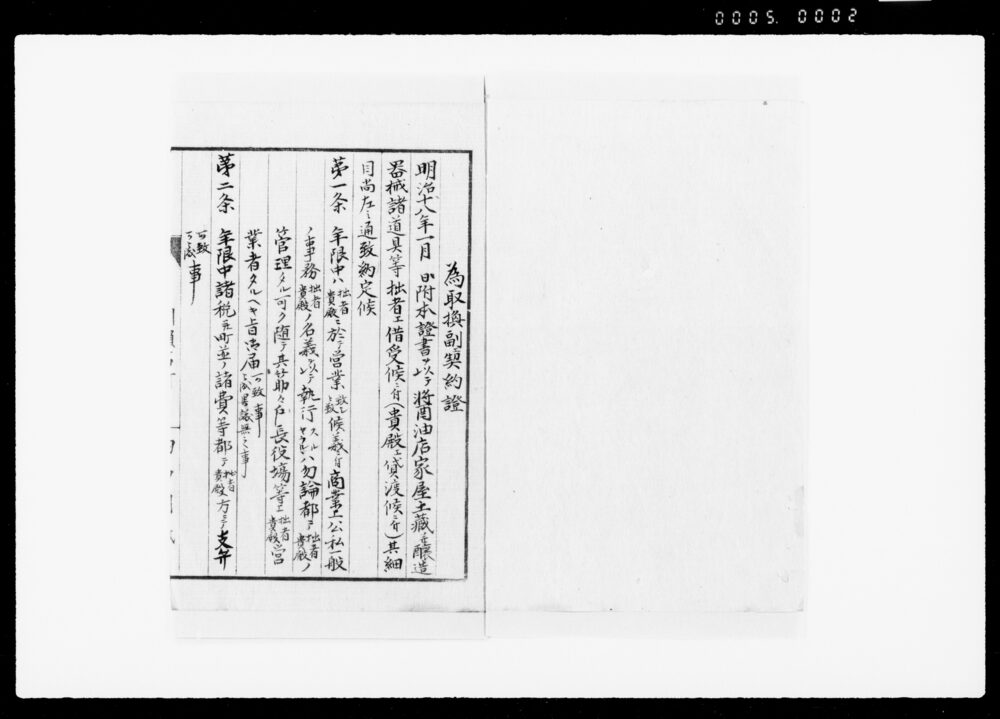 0005. 0002
為取換副契約證
明治十八年一月 日附本證書ヲ以テ醬油店家屋土藏並醸造
器械諸道具等拙者エ借受候ニ付(貴殿エ貸渡候ニ付)其細
目尚左ニ通致約定候
第一条 年限中ハ拙者貴殿ニ於テ営業致候義ニ付商業上公私一般
ノ事務拙者貴殿ノ名義ヲ以テ執行スルハ勿論都テ拙者貴殿ノ
管理タル可ク随テ其廿助々戸長役場等エ拙者貴殿営
業者タルヘキ旨御届可致事
第二条 年限中諸税並町並ノ諸費等都テ拙者貴殿方ニテ支弁
可致事